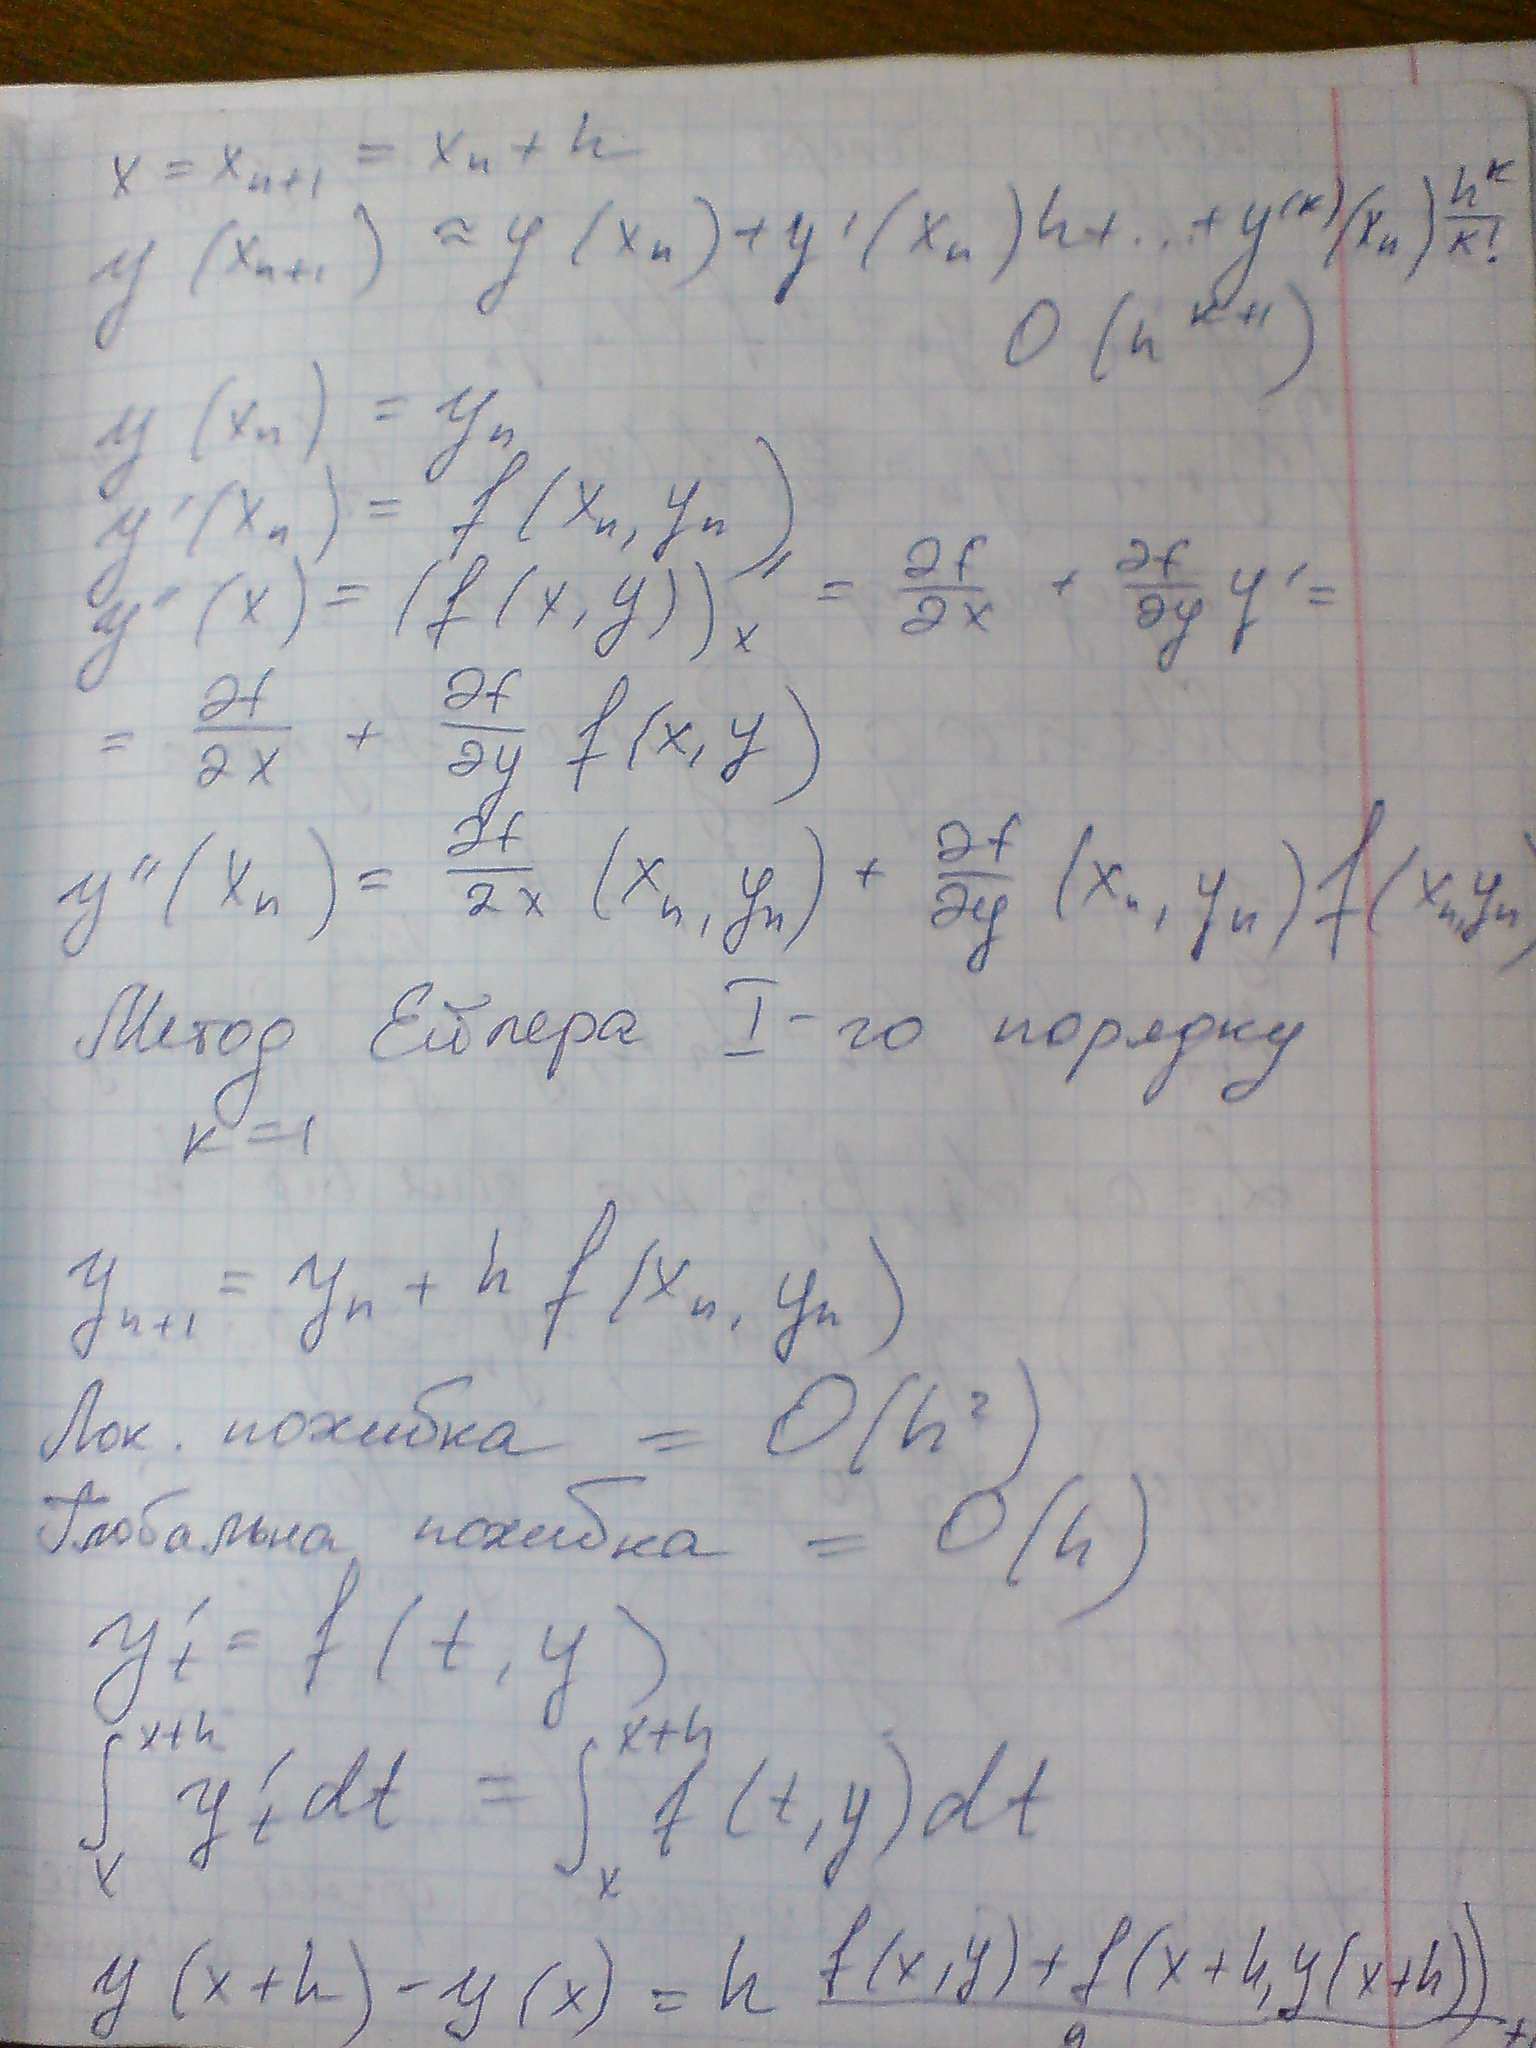 x = x_{n+1} = x_n + h
y(x_{n+1}) ≈ y(x_n) + y'(x_n)h + ... + y^{(к)}(x_n) h^к/к!
O(h^{к+1})
y(x_n) = y_n
y'(x_n) = f(x_n, y_n)
y''(x) = (f(x, y))''_x = ∂f/∂x + ∂f/∂y y' =
= ∂f/∂x + ∂f/∂y f(x, y)
y''(x_n) = ∂f/∂x (x_n, y_n) + ∂f/∂y (x_n, y_n) f(x_n, y_n)
Метод Ейлера I-го порядку
к = 1
y_{n+1} = y_n + h f(x_n, y_n)
Лок. похибка = O(h²)
Глобальна похибка = O(h)
y'_t = f(t, y)
∫_x^{x+h} y'_t dt = ∫_x^{x+h} f(t, y) dt
y(x+h) - y(x) = h (f(x, y) + f(x+h, y(x+h)))/2 +